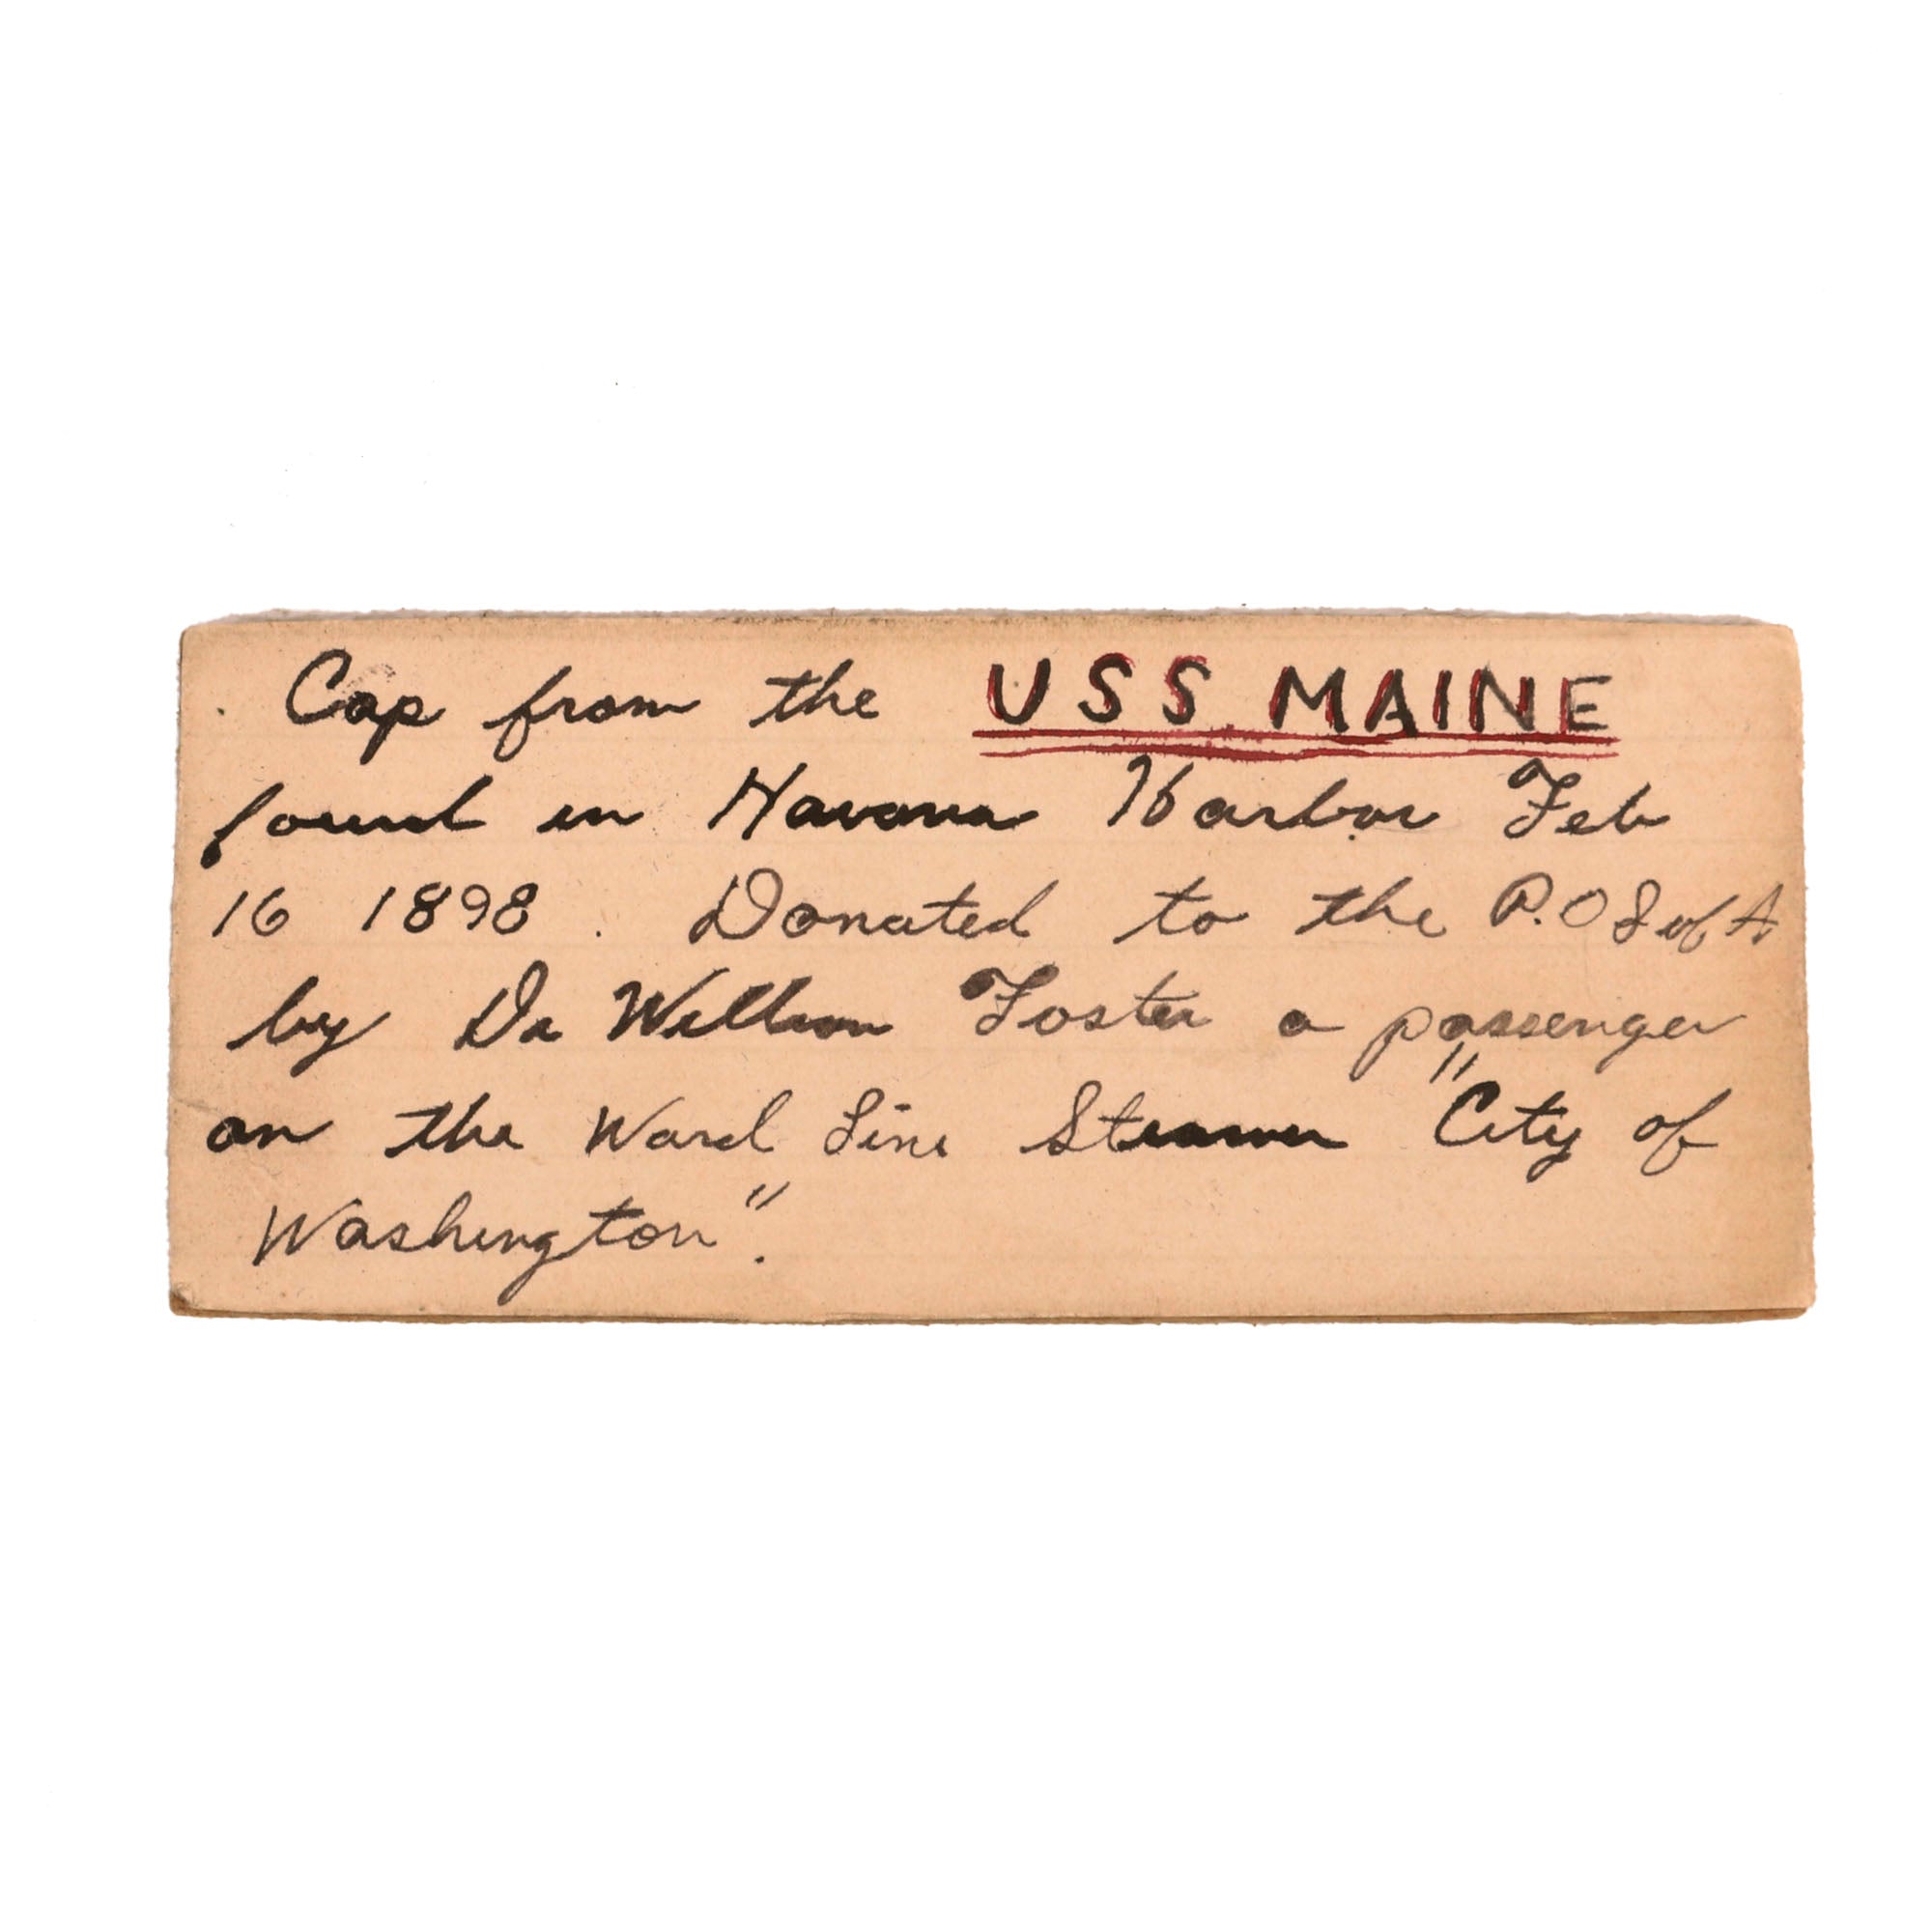 Cap from the USS MAINE
found in Havana Harbor Feb
16 1898. Donated to the P.O S of A
by Dr William Foster a passenger
on the Ward Line Steamer "City of
Washington".